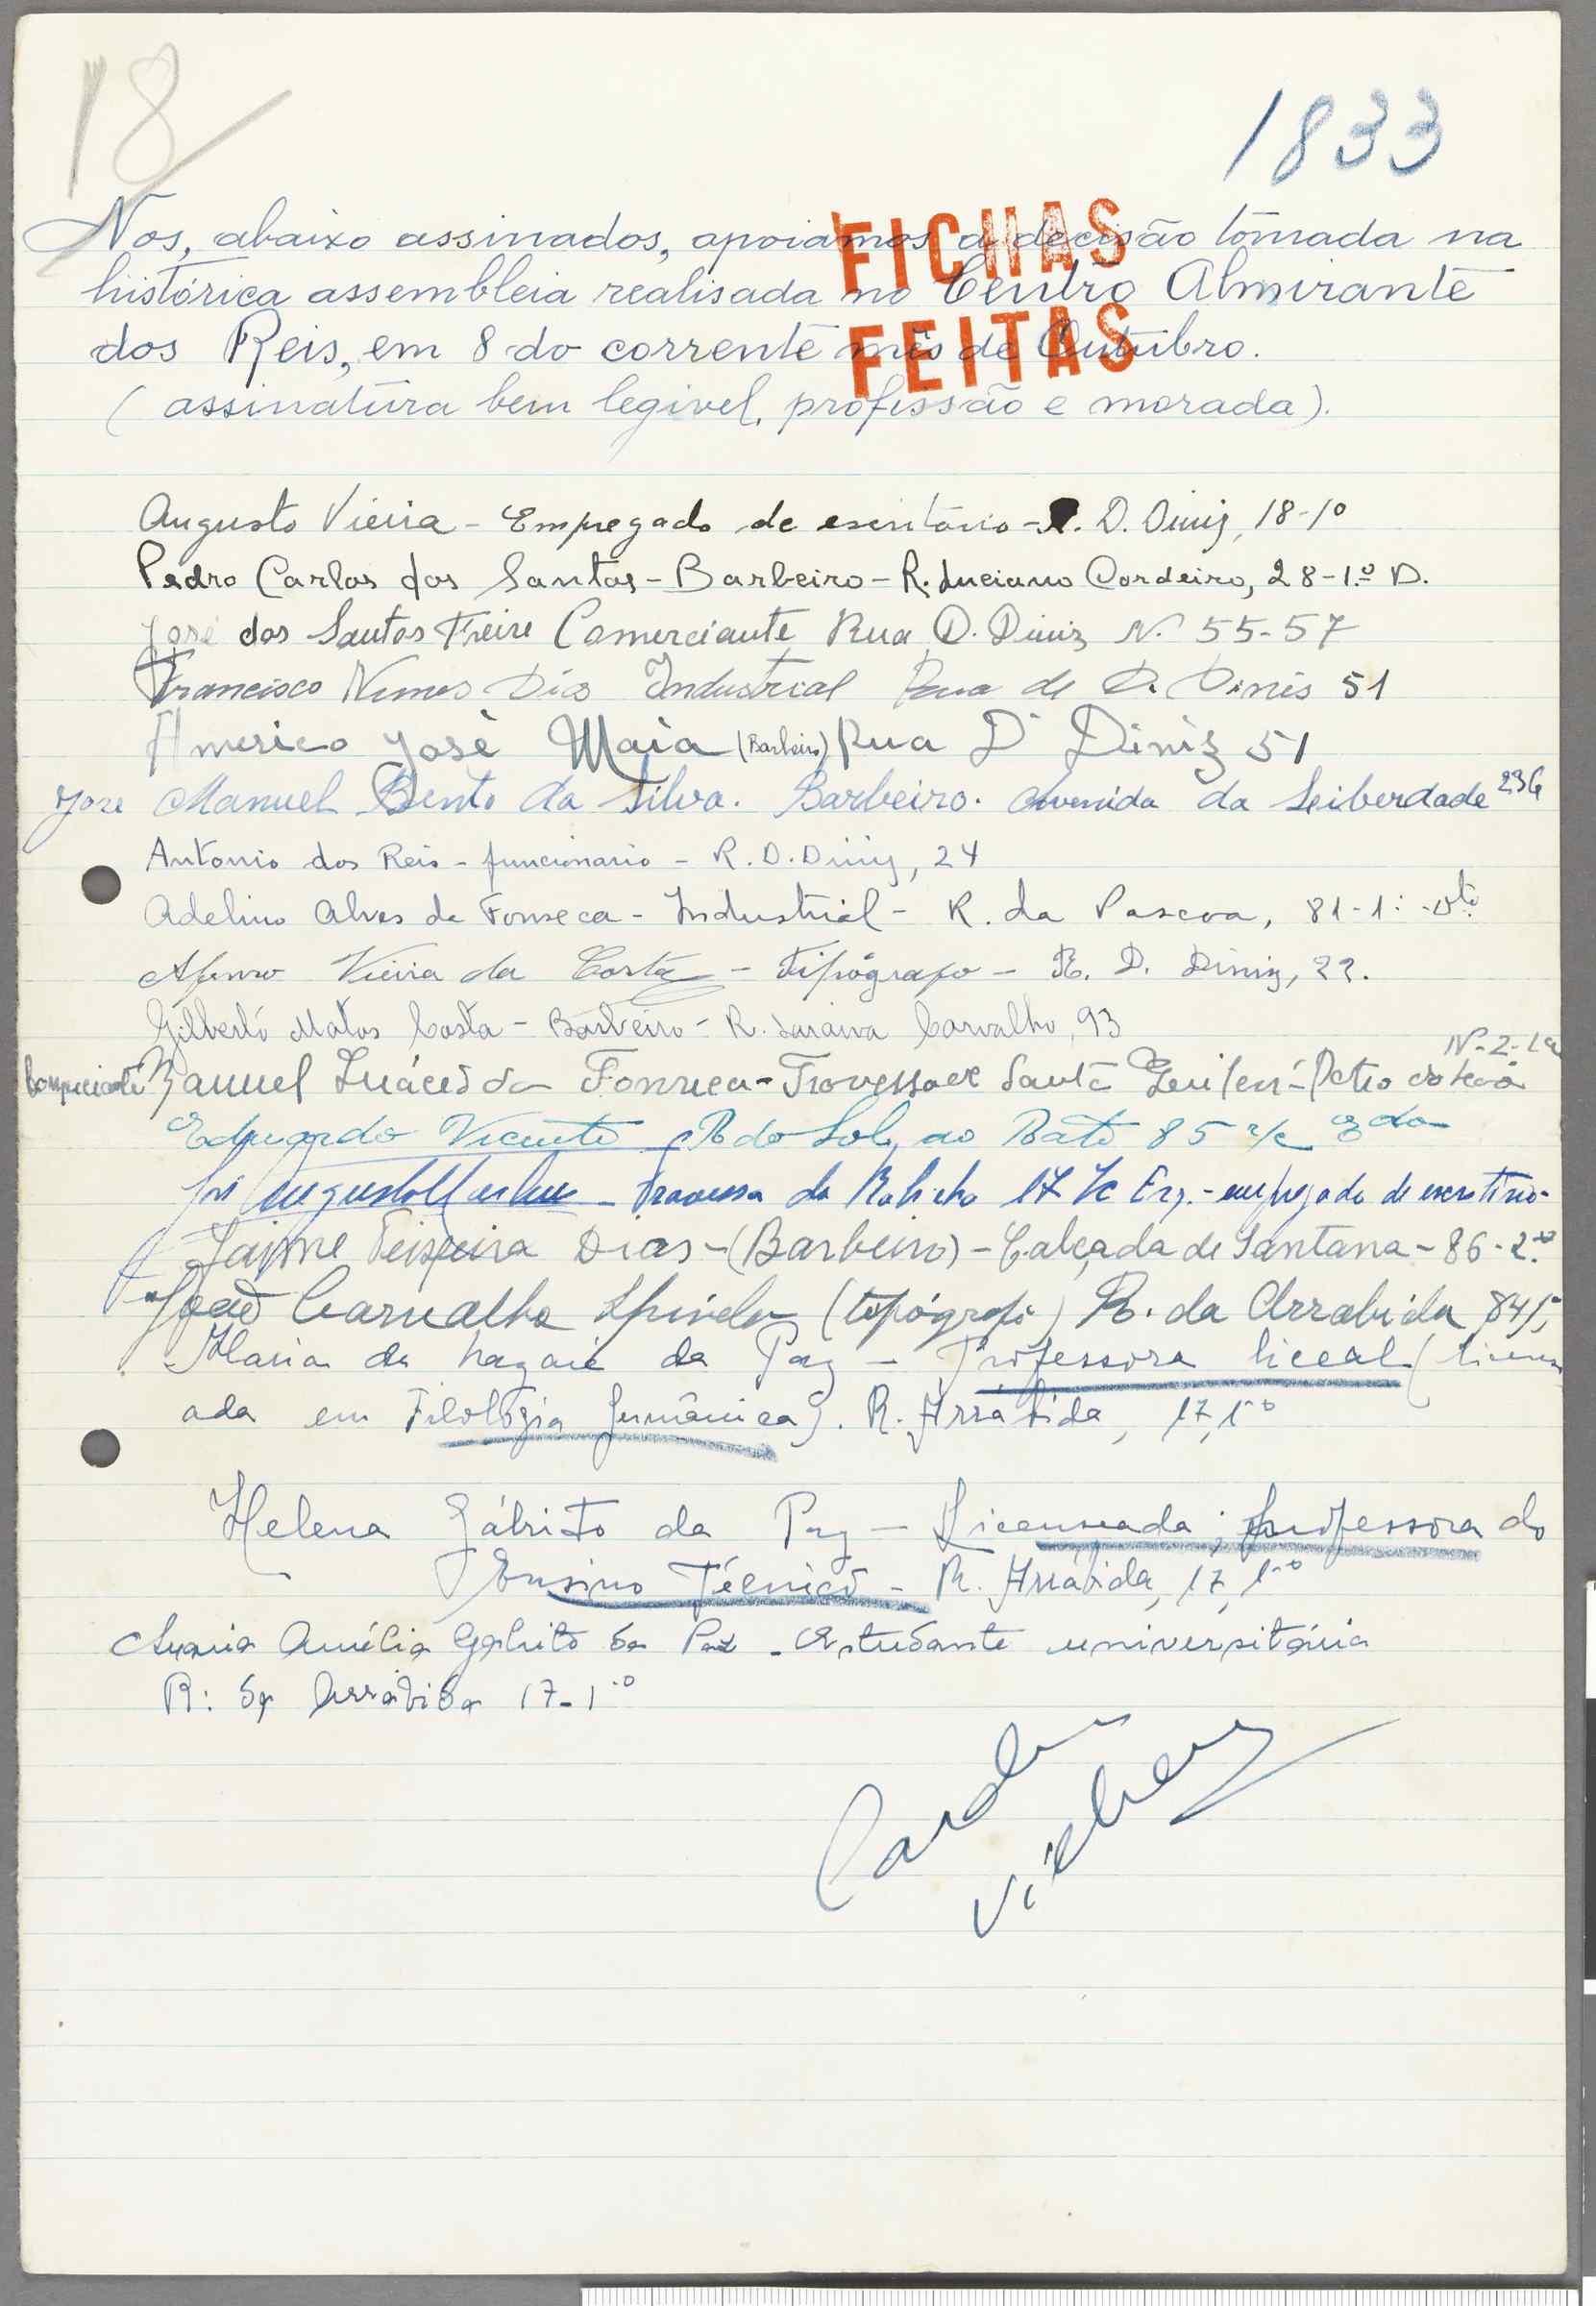 18
1833
FICHAS
FEITAS
Nos, abaixo assinados, apoiamos a decisão tomada na
histórica assembleia realisada no Centro Almirante
dos Reis, em 8 do corrente mês de Outubro.
(assinatura bem legivel, profissão e morada).
Augusto Vieira - Empregado de escritório - R. D. Diniz, 18-1º
Pedro Carlos dos Santos - Barbeiro - R. Luciano Cordeiro, 28-1.º D.
José dos Santos Freire Comerciante Rua D. Diniz N.º 55-57
Francisco Nunes Dias Industrial Rua de D. Dinis 51
Americo José Maia (Barbeiro) Rua D. Diniz 51
José Manuel Bento da Silva. Barbeiro. Avenida da Leiberdade 236
Antonio dos Reis - funcionario - R. D. Diniz, 24
Adelino Alves da Fonseca - Industrial - R. da Pascoa, 81-1.º
Afonso Vieira da Costa - tipógrafo - R. D. Diniz, 22.
Gilberto Matos Costa - Barbeiro - R. Saraiva Carvalho, 93
Manuel Inácio da Fonseca - Travessa de Santa
Eduardo Vicente R do Sol, ao Rato 85 r/c
José Augusto - Travessa do 17 r/c Esq. - empregado de escritório
Jaime Teixeira Dias - (Barbeiro) - Calçada de Santana - 86-2.º
João Carvalho (tipógrafo) R. da Arrabida 84
Maria da Nazaré da Paz - Professora liceal (licenci
ada em Filologia Germânica). R. Arrábida, 17, 1.º
Helena Gábrito da Paz - Licenseada; professora do
Ensino Técnico - R. Arrábida, 17, 1.º
Maria Amélia Gabrito da Paz - Estudante universitária
R: da Arrábida 17-1.º